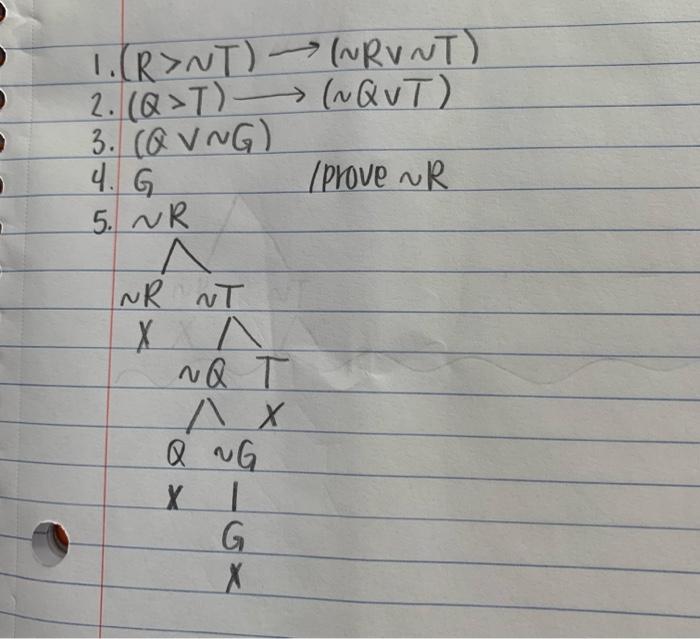 1. (R>~T) → (~R∨~T)
2. (Q>T) → (~Q∨T)
3. (Q ∨~G)
4. G /prove ~R
5. ~R
~R ~T
X
~Q T
X
Q ~G
X
G
X